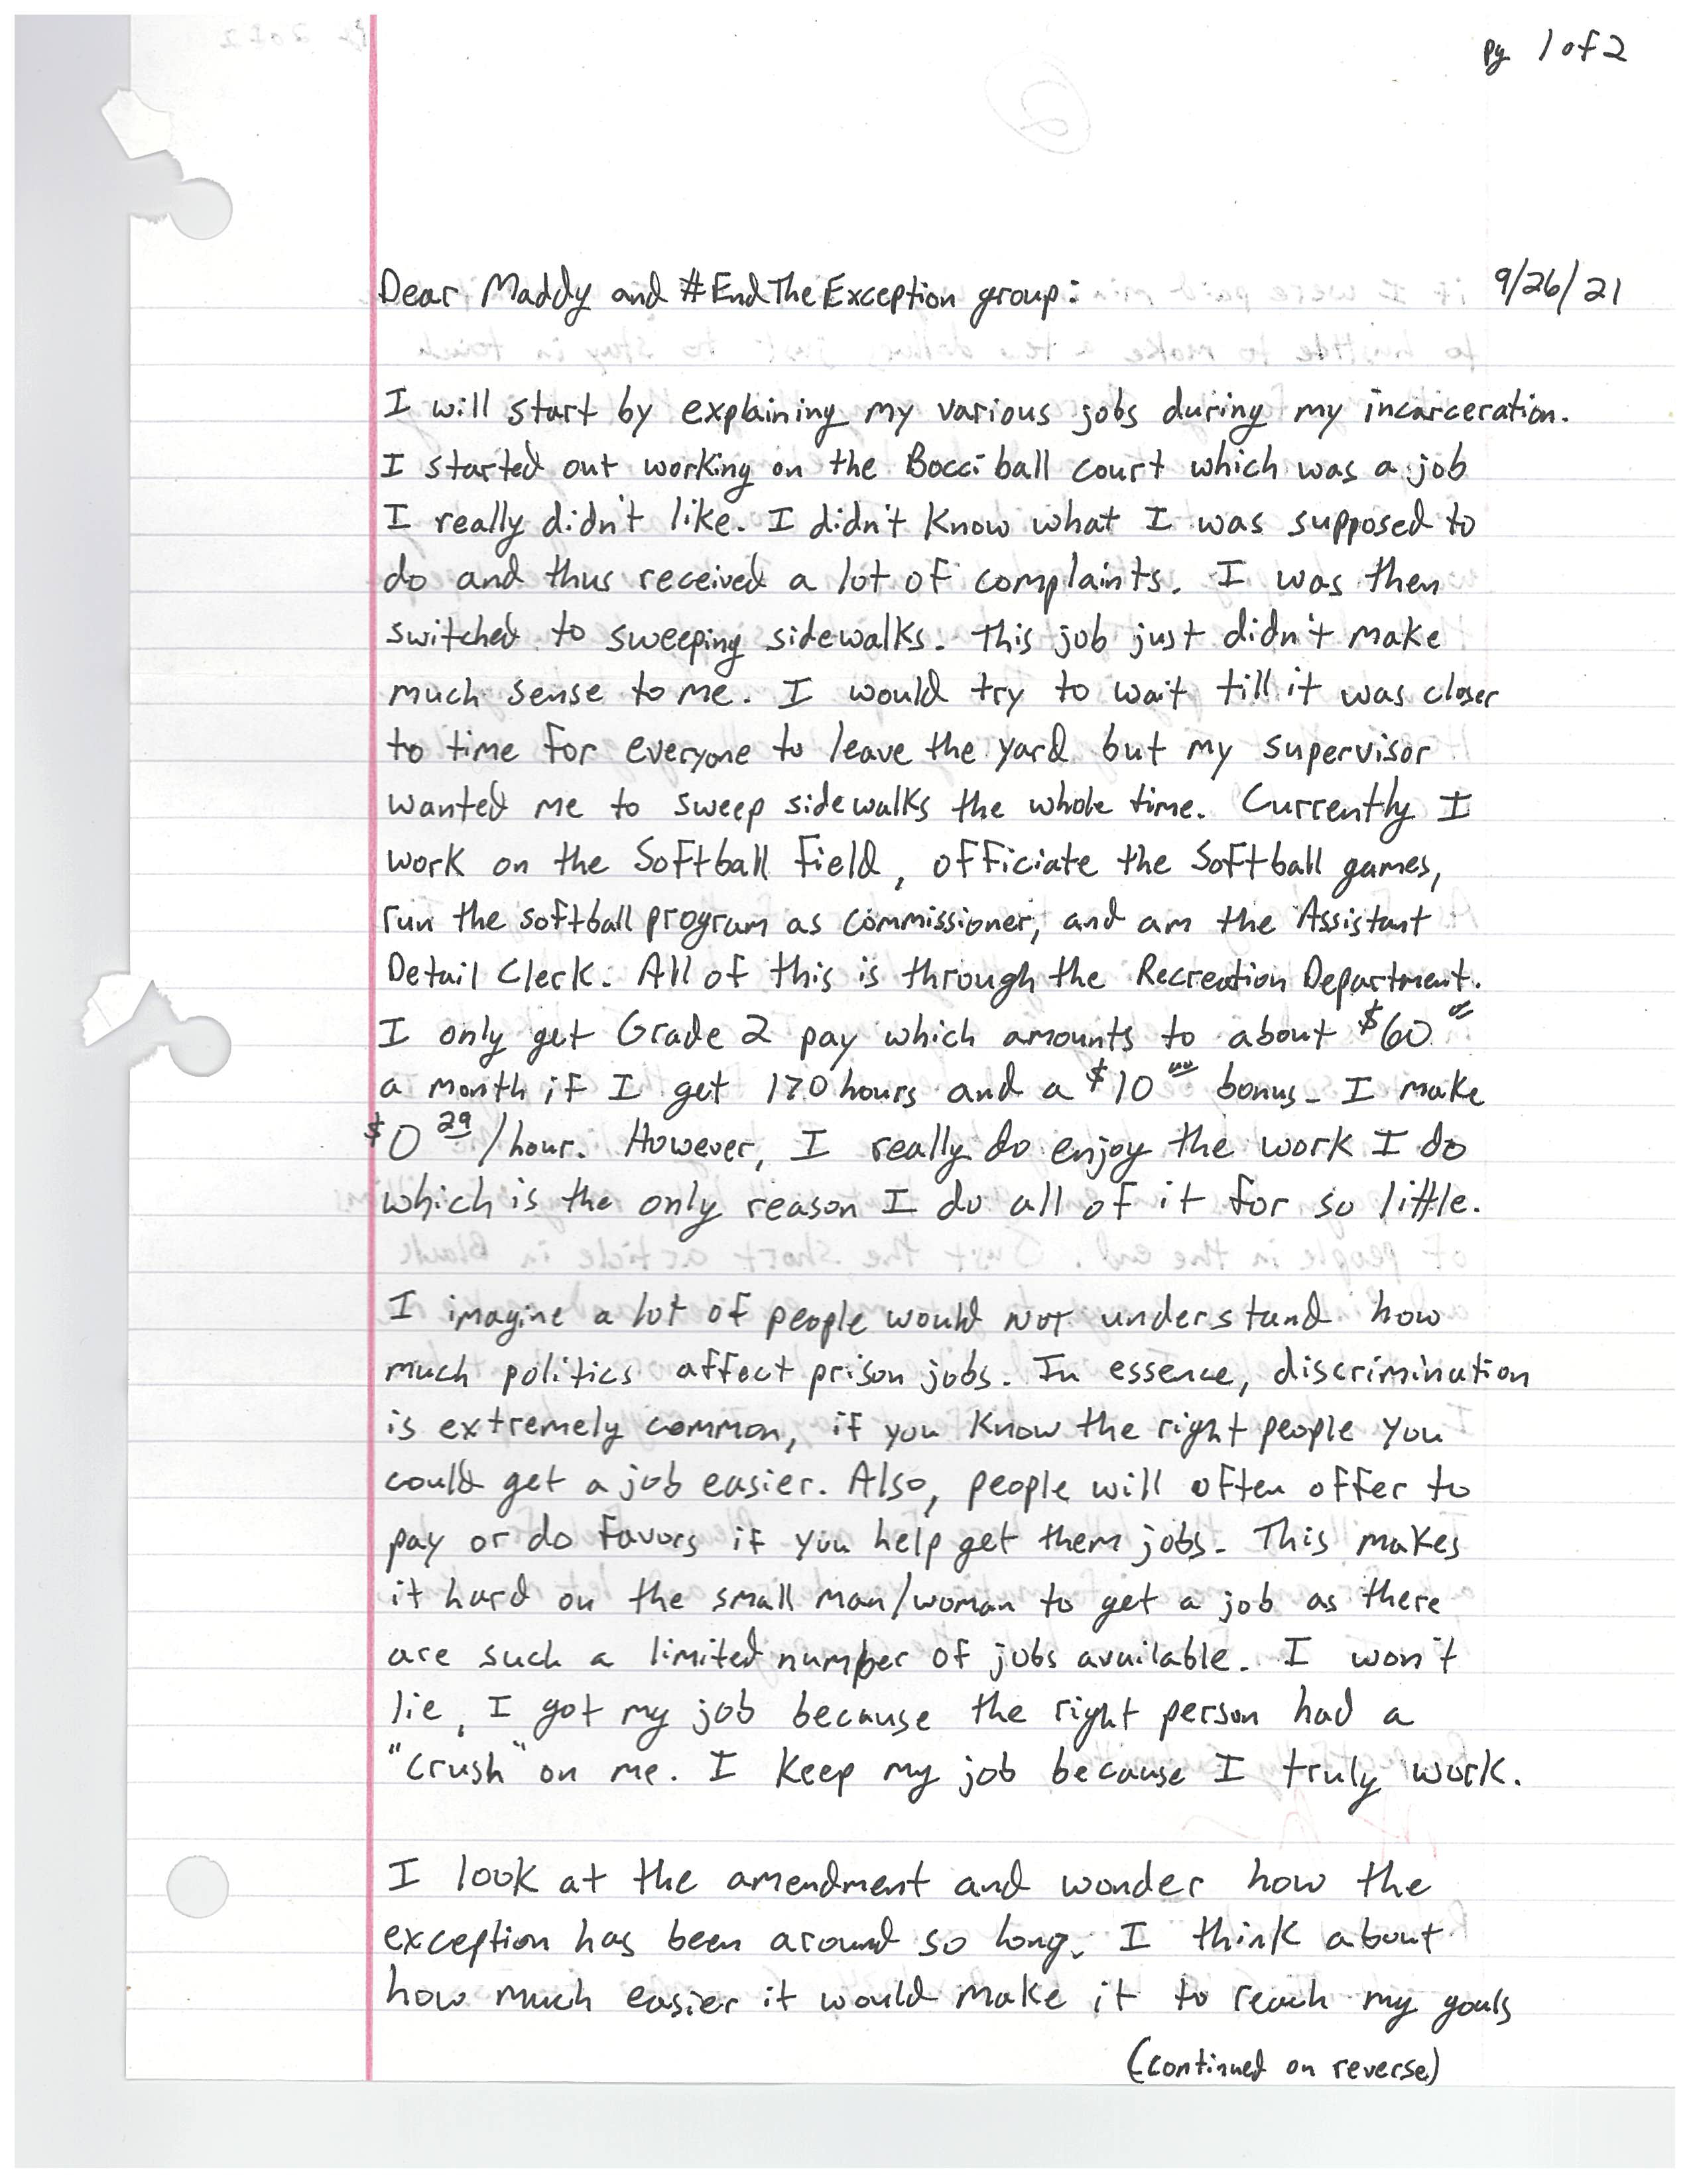 pg 1 of 2
Dear Maddy and #EndTheException group: 9/26/21
I will start by explaining my various jobs during my incarceration.
I started out working on the Bocci ball court which was a job
I really didn't like. I didn't know what I was supposed to
do and thus received a lot of complaints. I was then
switched to sweeping sidewalks. This job just didn't make
much sense to me. I would try to wait till it was closer
to time for everyone to leave the yard but my supervisor
wanted me to sweep sidewalks the whole time. Currently I
work on the Softball Field, officiate the Softball games,
run the softball program as Commissioner, and am the Assistant
Detail Clerk. All of this is through the Recreation Department.
I only get Grade 2 pay which amounts to about $60
a month if I get 170 hours and a $10 00 bonus. I make
$0 29/hour. However, I really do enjoy the work I do
which is the only reason I do all of it for so little.
I imagine a lot of people would NOT understand how
much politics affect prison jobs. In essence, discrimination
is extremely common, if you know the right people you
could get a job easier. Also, people will often offer to
pay or do favors if you help get them jobs. This makes
it hard on the small man/woman to get a job as there
are such a limited number of jobs available. I won't
lie, I got my job because the right person had a
"crush" on me. I keep my job because I truly work.
I look at the amendment and wonder how the
exception has been around so long. I think about
how much easier it would make it to reach my goals
(continued on reverse)